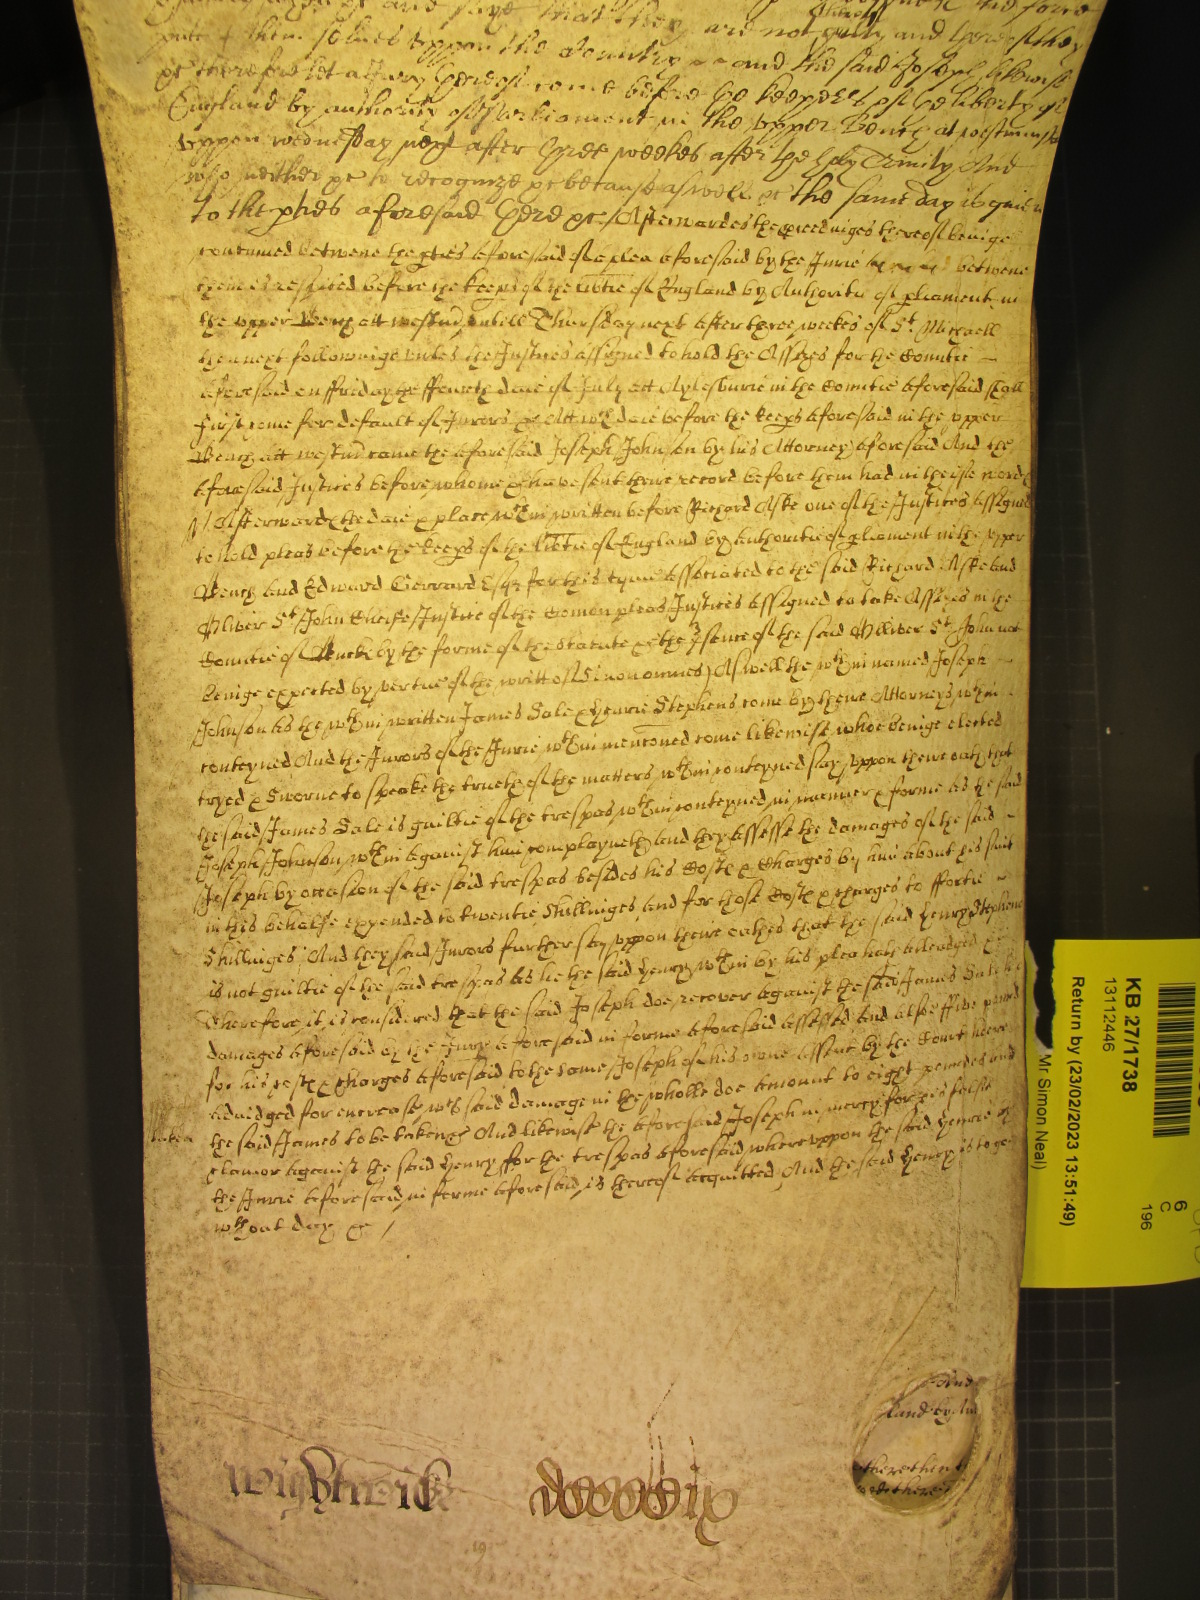 and saye that they are not guilty and thereof they
of them selves uppon the Country &c and the said Joseph likewise
&c therefore let a Jury thereof come before the keepers of the liberty of
England by authority of Parliament in the upper Bench at westminster
uppon wednesday next after three weekes after the holy Trinity And
who neither &c to recognize &c because aswell &c the same day is given
to the pties aforesaid there &c / Afterwardes the pceedinges thereof beinge
continued betwene the pties aforesaid of a plea aforesaid by the Jurie betwene
them is respited before the Keeps of the libtie of England by Authoritie of pliament in
the upper Bench att Westmr untill Thursday next after three weekes of St. Michaell
then next followinge unles the Justices assigned to hold the Assizes for the Countie
aforesaid on ffriday the ffourth daie of July att Aylesburie in the Countie aforesaid shall
first come for default of Jurors &c Att wch daie before the keeps aforesaid in the upper
Bench att westmr came the aforesaid Joseph Johnson by his Attorney aforesaid And the
aforesaid Justices before whome &c have sent there record before them had in theise words
Afterwards the daie & place wthin written before Richard Aske one of the Justices assigned
to hold pleas before the Keeps of the libtie of England by authoritie of pliament in the upper
Bench and Edward Gerrard Esqr for this tyme associated to the said Richard Aske and
Olliver St. John Cheife Justice of the Comon pleas Justices assigned to take Assizes in the
Countie of Bucks by the forme of the statute &c the psence of the said Olliver St. John not
beinge expected by vertue of the writt of Si non omnes) Aswell the wthin named Joseph
Johnson as the wthin written James Sale & Henrie Stephens come by there Attorneys wthin
conteyned And the Jurors of the Jurie wthin mencioned come likewise whoe beinge elected
tryed & sworne to speake the trueth of the matters wthin conteyned say uppon there oath that
the said James Sale is guiltie of the trespas wthin conteyned in manner & forme as the said
Joseph Johnson wthin against him complayneth and they assesse the damages of the said
Joseph by occasion of the said trespas besides his Costs & Charges by him about his suit
in this behalfe expended to twentie Shillinges and for those Costs & charges to ffortie
Shillinges And they said Jurors further say uppon there oathes that the said Henry Stephens
is not guiltie of the said trespas as he the said Henry wthin by his plea hath alleadged &c
Therefore it is considered that the said Joseph doe recover against the said James Sale his
damages aforesaid by the Jury aforesaid in forme aforesaid assessed And alsoe ffive pounds
for his costs & charges aforesaid to the same Joseph of his owne assent by the Court heere
adiudged for encrease wch said damage in the wholle doe amount to eight pounds and
the said James to be taken &c And likewise the aforesaid Joseph in mercy for his false
clamor against the said Henry for the trespas aforesaid whereuppon the said Henrie by
the Jurie aforesaid in forme aforesaid is thereof acquitted And the said Henry is to goe
wthout day &c /
taken
And
and by
there then
wightwick
dccccix
19
KB 27/1738
13112446
Return by (23/02/2023 13:51:49)
Mr Simon Neal)
6
C
196